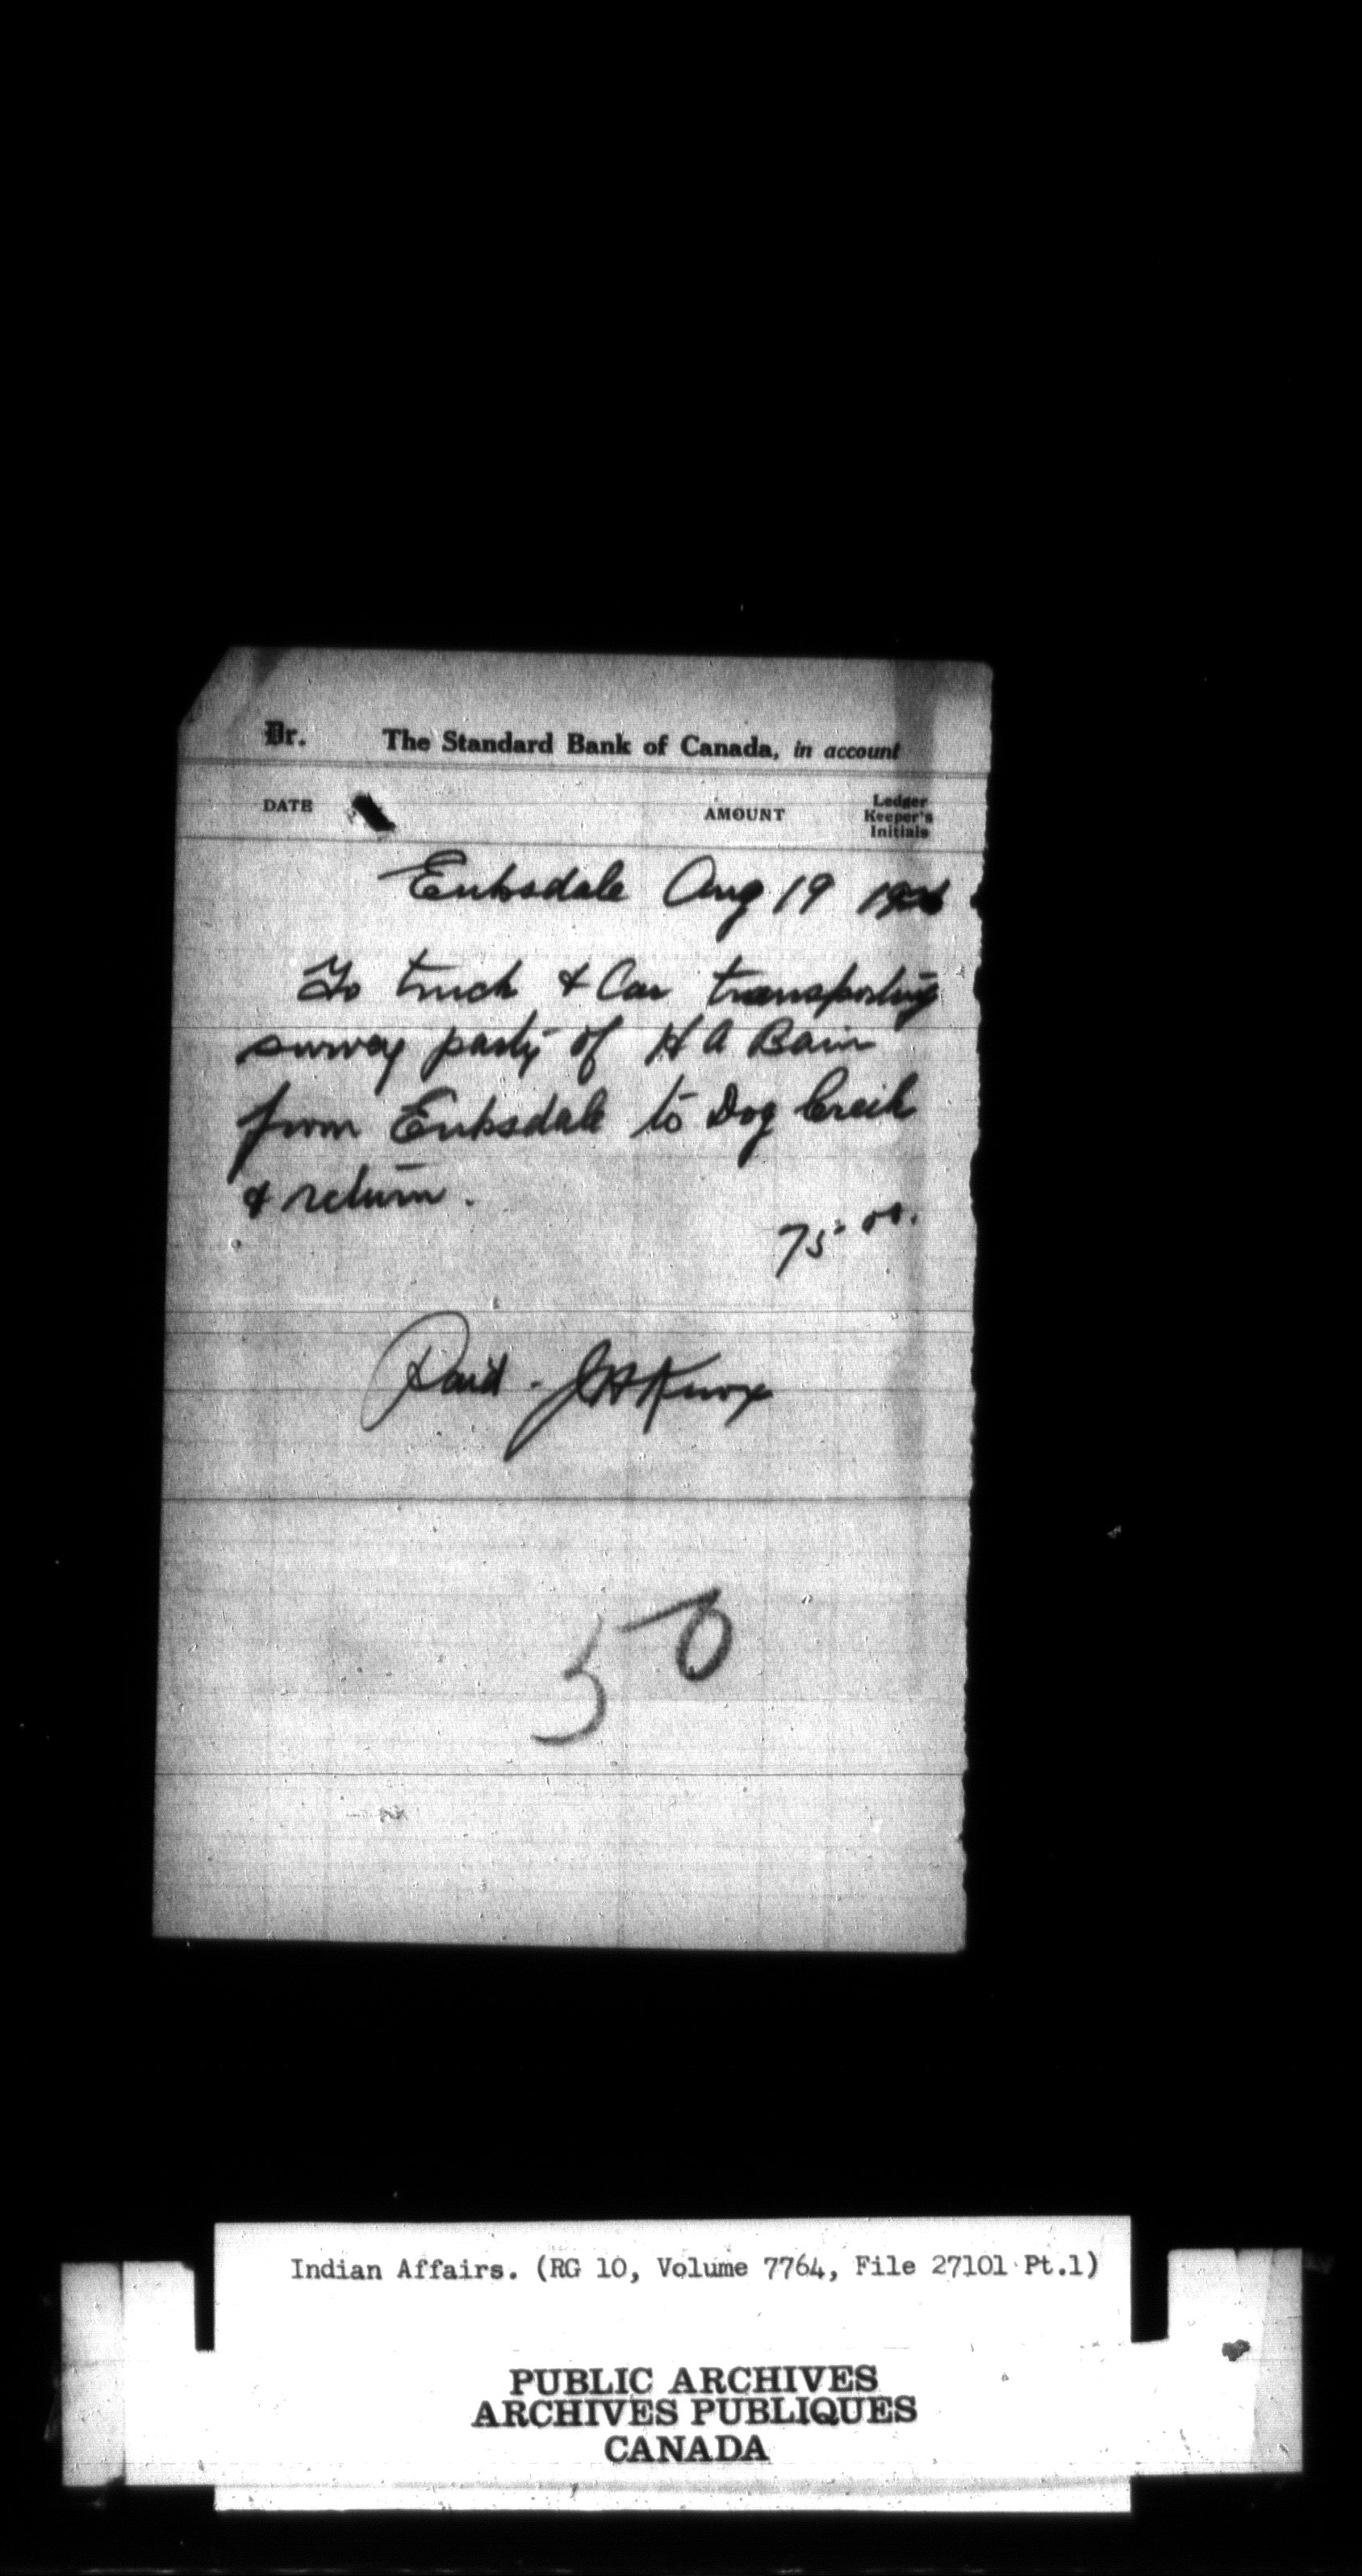 Dr. The Standard Bank of Canada, in account
DATE AMOUNT Ledger Keeper's Initials
Eriksdale Aug 19
To truck & Car transporting
survey party of H A Bain
from Eriksdale to Dog Creek
& return.
75 00.
Paid - J H Knox
50
Indian Affairs. (RG 10, Volume 7764, File 27101 Pt.1)
PUBLIC ARCHIVES
ARCHIVES PUBLIQUES
CANADA